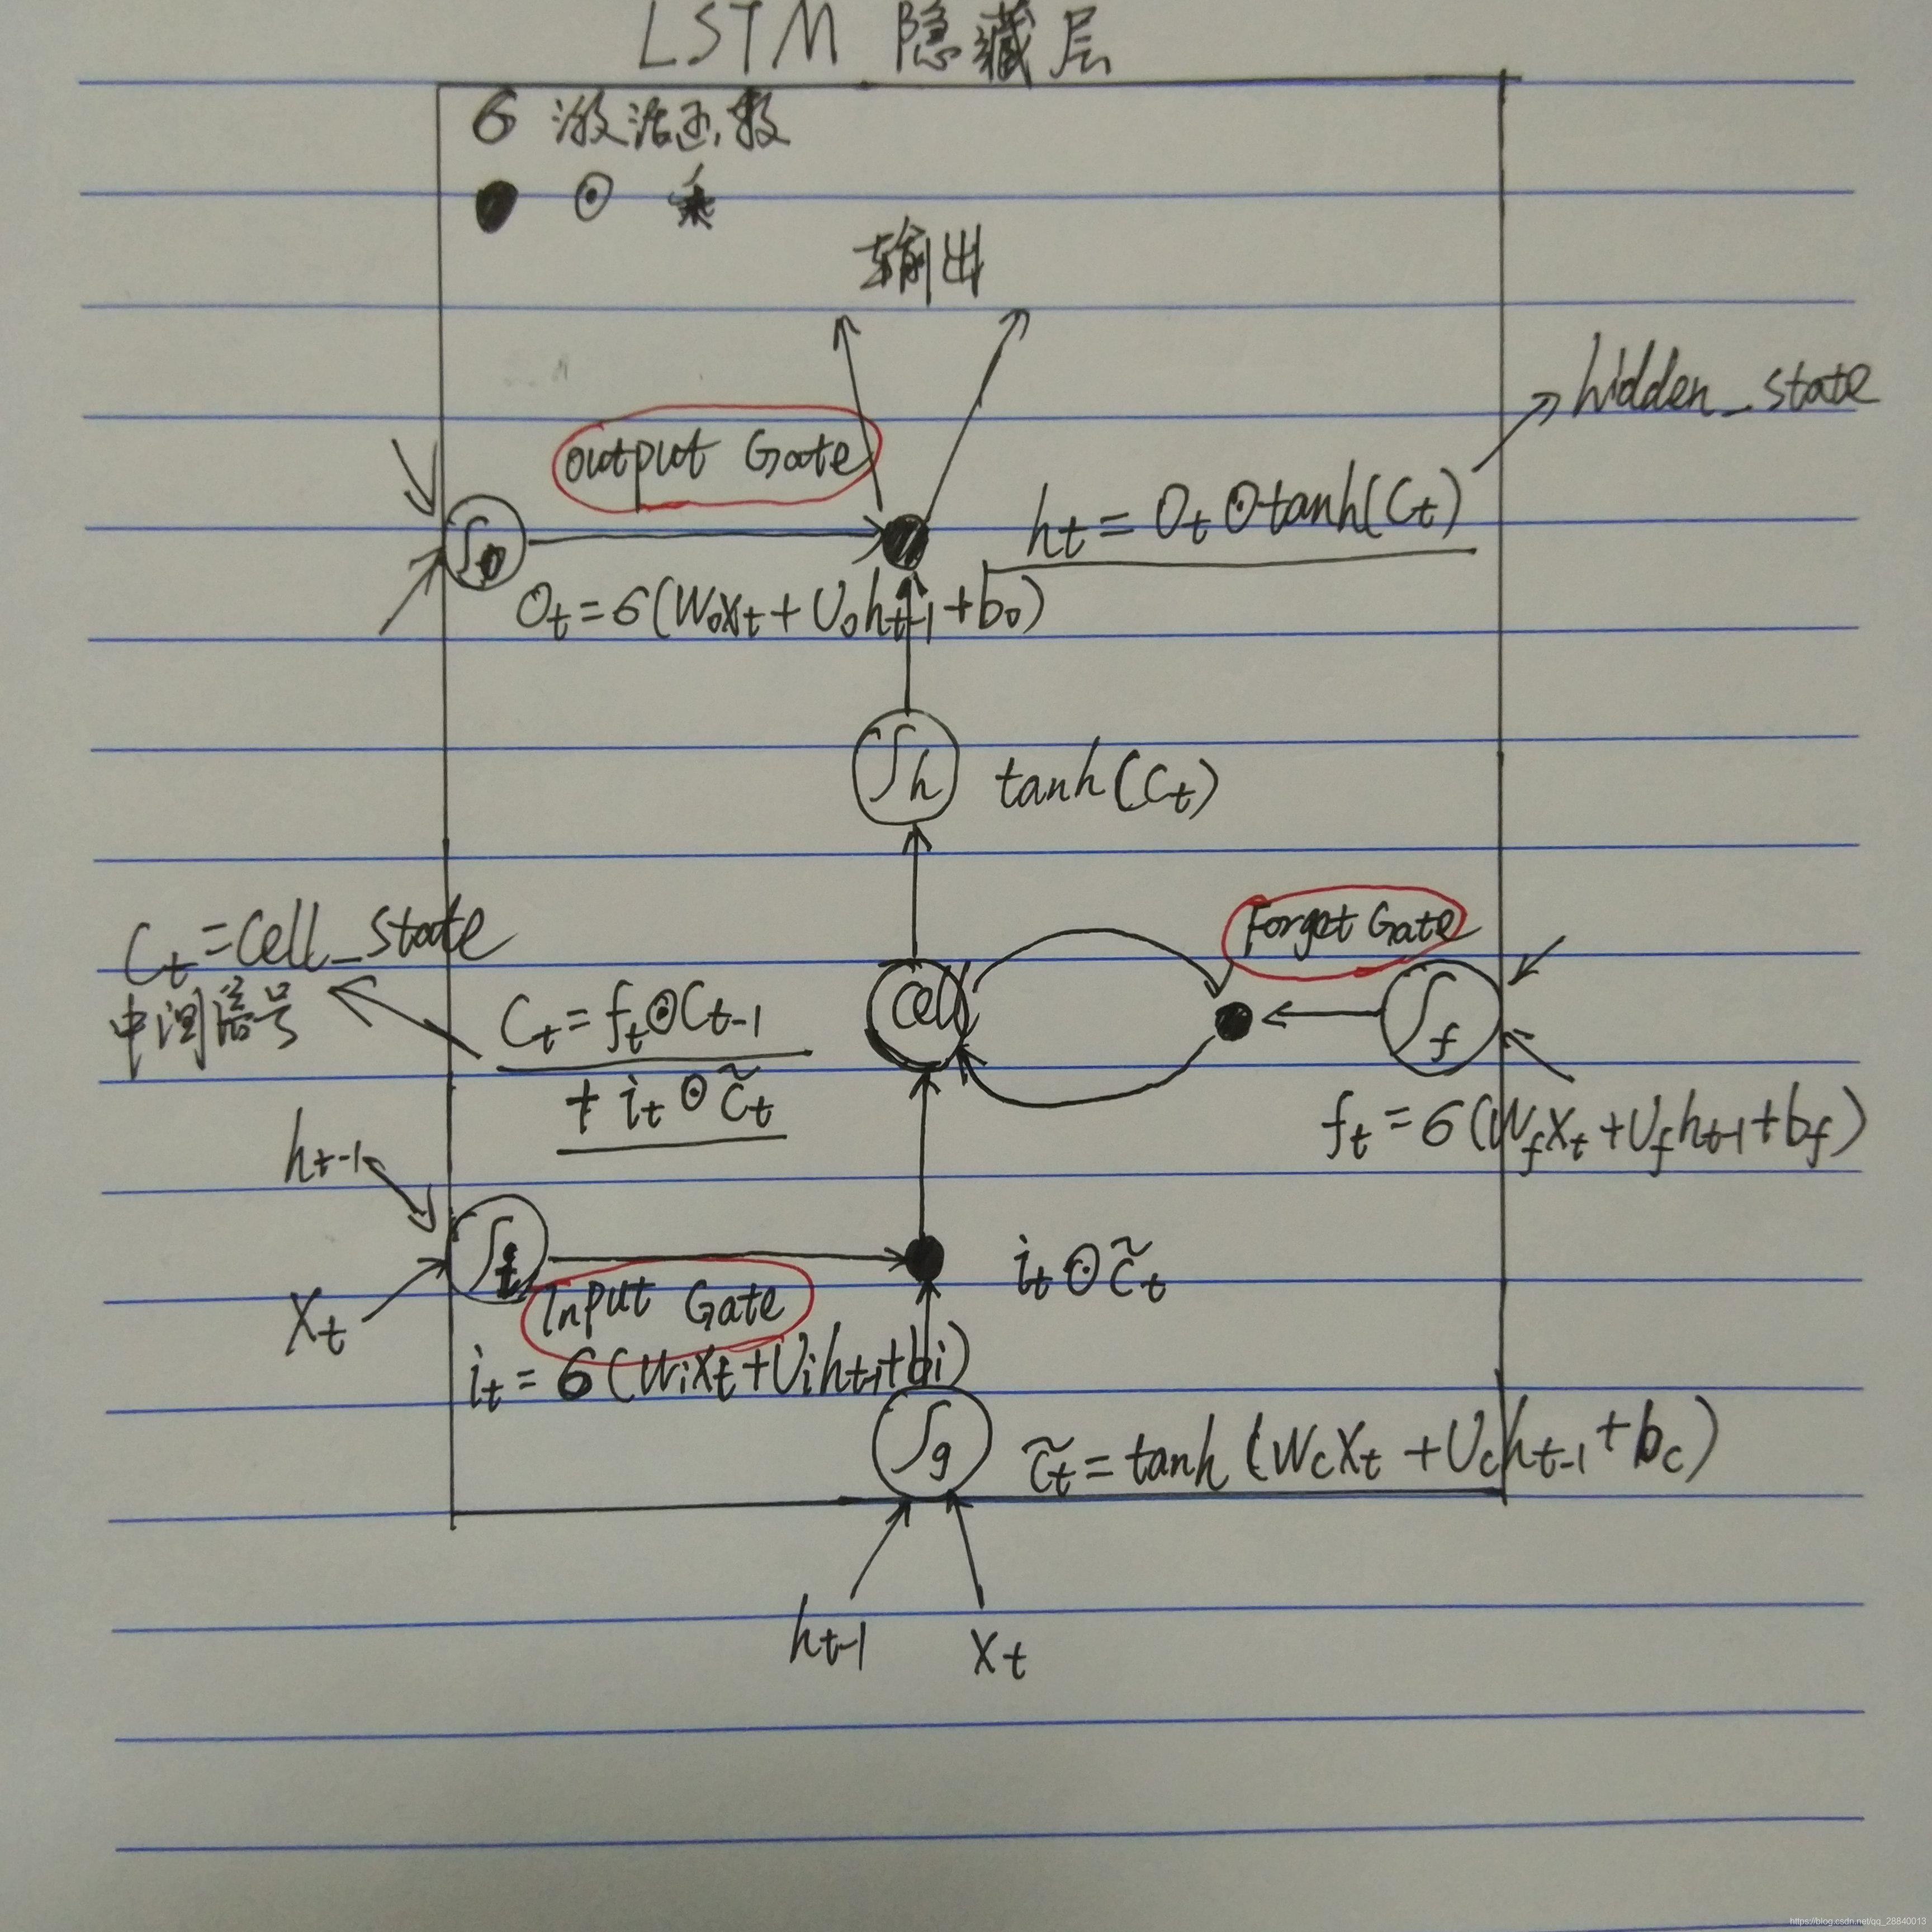 LSTM 隐藏层
6 激活函数
● ⊙ 乘
输出
hidden_state
output Gate
ht = Ot ⊙ tanh(Ct)
∫o
Ot = 6(Woxt + Uoht-1 + bo)
∫h tanh(Ct)
Forget Gate
Ct = Cell_state
中间信号
Ct = ft ⊙ Ct-1
+ it ⊙ c̃t
Cell
∫f
ft = 6(Wfxt + Ufht-1 + bf)
ht-1
∫i
it ⊙ c̃t
Xt
Input Gate
it = 6(Wixt + Uiht-1 + bi)
∫g
c̃t = tanh(WcXt + Ucht-1 + bc)
ht-1 Xt
https://blog.csdn.net/qq_28840013